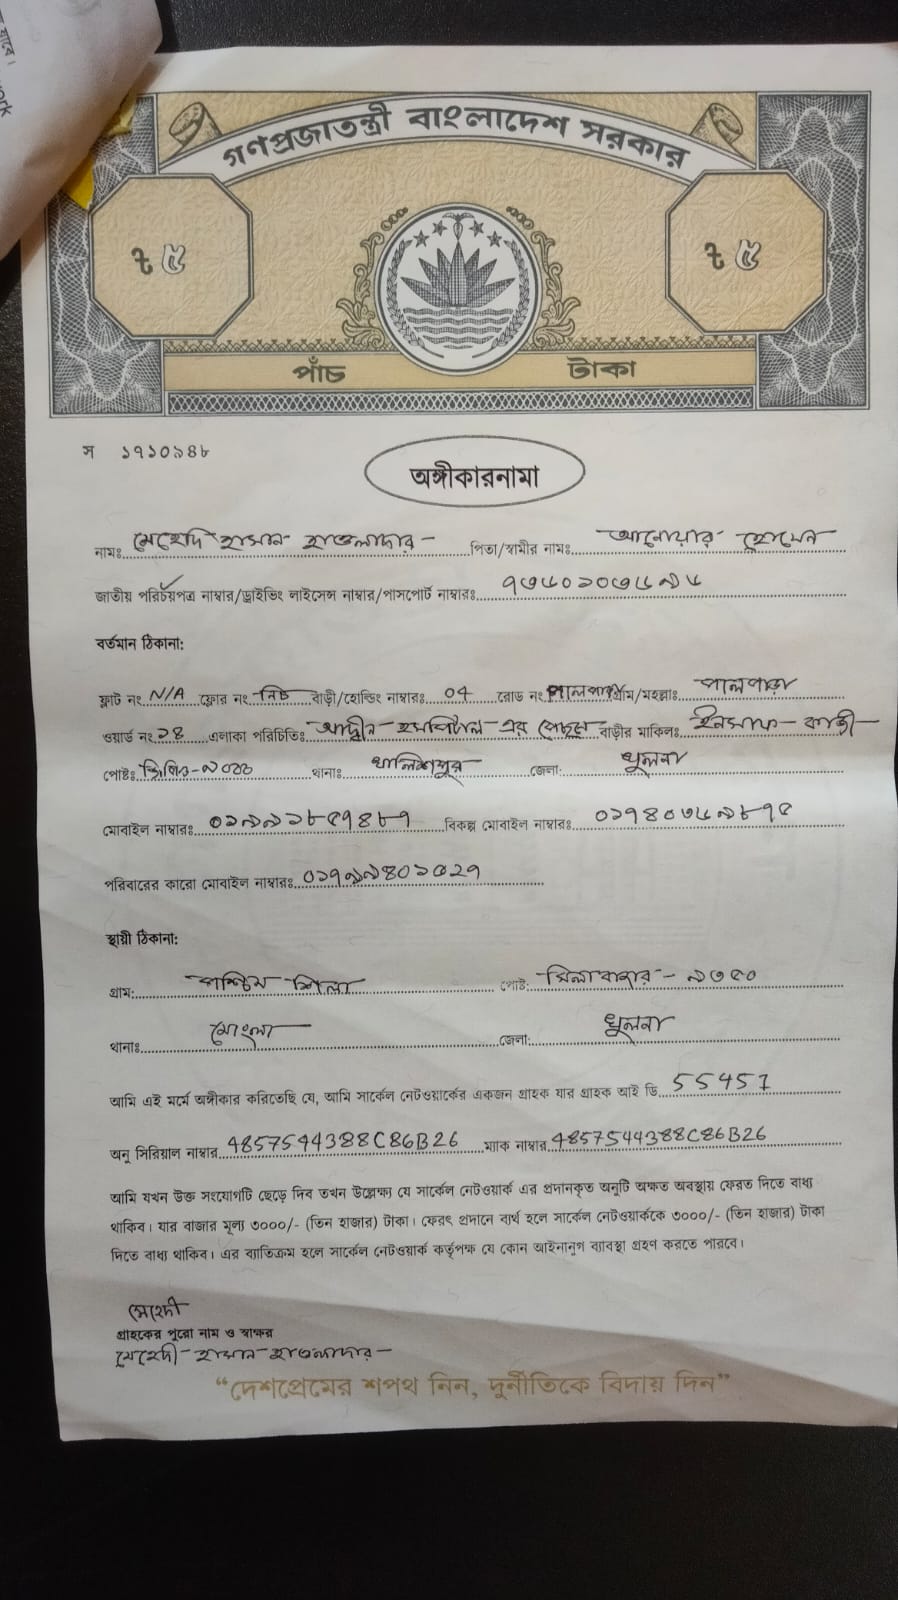 গণপ্রজাতন্ত্রী বাংলাদেশ সরকার
৳ ৫ ৳ ৫
পাঁচ টাকা
স ১৭১০৯৪৮
অঙ্গীকারনামা
নামঃ মেহেদি হাসান হাওলাদার পিতা/স্বামীর নামঃ আনোয়ার হোসেন
জাতীয় পরিচয়পত্র নাম্বার/ড্রাইভিং লাইসেন্স নাম্বার/পাসপোর্ট নাম্বারঃ
বর্তমান ঠিকানা:
ফ্লাট নং N/A ফ্লোর নং নিচ বাড়ী/হোল্ডিং নাম্বারঃ 04 রোড নং পালপাড়া গ্রাম/মহল্লাঃ পালপাড়া
ওয়ার্ড নং ১৪ এলাকা পরিচিতিঃ আদ্বীন হসপিটাল এর পেছনে বাড়ীর মালিকঃ ইনসাফ কাজী
পোষ্টঃ থানাঃ খালিশপুর জেলা: খুলনা
মোবাইল নাম্বারঃ ০১৯৯১৮৫৭৪৮৭ বিকল্প মোবাইল নাম্বারঃ ০১৭৪০৩৬৯৮৭৫
পরিবারের কারো মোবাইল নাম্বারঃ
স্থায়ী ঠিকানা:
গ্রাম: পশ্চিম শিলা পোষ্ট: ৯৩৫০
থানাঃ মোংলা জেলা: খুলনা
আমি এই মর্মে অঙ্গীকার করিতেছি যে, আমি সার্কেল নেটওয়ার্কের একজন গ্রাহক যার গ্রাহক আই ডি 55457
অনু সিরিয়াল নাম্বার 4857544388C86B26 ম্যাক নাম্বার 4857544388C86B26
আমি যখন উক্ত সংযোগটি ছেড়ে দিব তখন উল্লেক্ষ্য যে সার্কেল নেটওয়ার্ক এর প্রদানকৃত অনুটি অক্ষত অবস্থায় ফেরত দিতে বাধ্য
থাকিব। যার বাজার মূল্য ৩০০০/- (তিন হাজার) টাকা। ফেরৎ প্রদানে ব্যর্থ হলে সার্কেল নেটওয়ার্ককে ৩০০০/- (তিন হাজার) টাকা
দিতে বাধ্য থাকিব। এর ব্যতিক্রম হলে সার্কেল নেটওয়ার্ক কর্তৃপক্ষ যে কোন আইনানুগ ব্যবস্থা গ্রহণ করতে পারবে।
মেহেদী
গ্রাহকের পুরো নাম ও স্বাক্ষর
মেহেদী হাসান হাওলাদার
“দেশপ্রেমের শপথ নিন, দুর্নীতিকে বিদায় দিন”